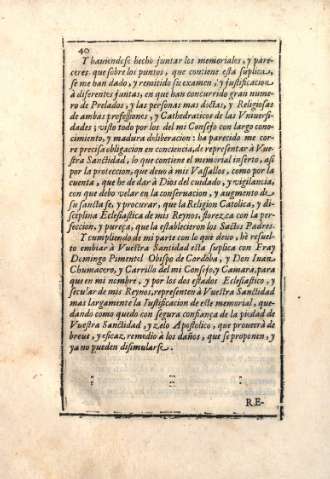 40
Y haviendose hecho juntar los memoriales, y pare-
ceres que sobre los puntos, que contiene esta suplica,
se me han dado, y remitido su examen, y justificacion
à diferentes juntas, en que han concurrido gran nume-
ro de Prelados, y las personas mas doctas, y Religiosas
de ambas professiones, y Cathedraticos de las Vniuersi-
dades; visto todo por los del mi Consejo con largo cono-
cimiento, y madura deliberacion: ha parecido me cor-
re precisa obligacion en conciencia, de representar à Vue-
stra Sanctidad, lo que contiene el memorial inserto, asi
por la proteccion, que deuo à mis Vassallos, como por la
cuenta, que he de dar à Dios del cuidado, y vigilancia,
con que debo velar en la conseruacion, y augmento de
su sancta fe, y procurar, que la Religion Catolica, y di-
sciplina Eclesiastica de mis Reynos, florezca con la per-
feccion, y pureça, que la establecieron los Sactos Padres.
Y cumpliendo de mi parte con lo que deuo, hè resuel-
to embiar à Vuestra Sanctidad esta suplica con Fray
Domingo Pimentel Obispo de Cordoba, y Don Iuan
Chumacero, y Carrillo del mi Consejo, y Camara, para
que en mi nombre, y por los dos estados Eclesiastico, y
secular de mis Reynos, representen à Vuestra Sanctidad
mas largamente la Iustificacion de este memorial, que-
dando como quedo con segura confiança de la piedad de
Vuestra Sanctidad, y zelo Apostolico, que proueerà de
breue, y eficaz, remedio à los daños, que se proponen, y
ya no pueden disimularse.
RE-